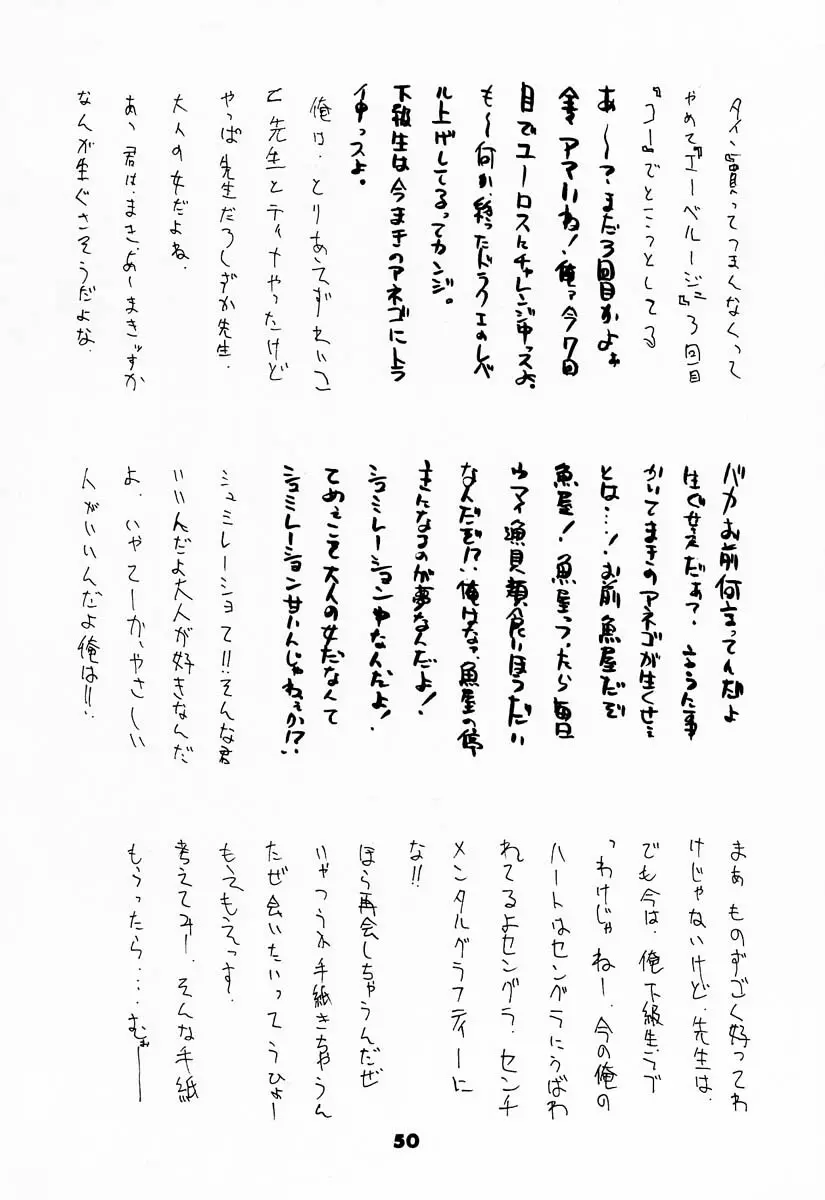 タイン買ってつまんなくって
やめて『エーベルージュ』3回目
『コー』でところとしてる
あ〜?まだ3回目かよぉ
金マアマいね!俺ァ今7回
目でユーロストにチャレンジ中っスよ。
も〜何か、終ったドラクエのレベ
ル上げしてるってカンジ。
下級生は今まきのアネゴにトラ
イ中っスよ。
俺は、とりあえずれいこ
と先生とティナやったけど
やっぱ先生だろしずか先生.
大人の女だよね.
あ、君は、まさ、あ〜まきずか
なんが生ぐさそうだよな.
バカお前何言ってんだよ
生ぐせえだぁ?言うた事
かいてまきのアネゴが生くせえ
とは…!お前魚屋だぞ
魚屋!魚屋っつったら毎日
ウマイ漁貝類食いほうだい
なんだぞ!?俺はなァ、魚屋の停
主になるのが夢なんだよ!
シュミレーション中なんだよ!
てめぇこそ大人の女だなんて
シュミレーション甘いんじゃねぇか!?
シュミレーショて!!そんな君
いいんだよ大人が好きなんだ
よ.いやてーか、やさしい
人がいいんだよ俺は!!
まあものすごく好ってわ
けじゃないけど.先生は.
でも今は、俺下級生って
っわけじゃねー.今の俺の
ハートはセングラにうばわ
れてるよセングラ.センチ
メンタルグラフティーに
な!!
ほら再会しちゃうんだぜ
いやつうか手紙きちゃうん
だぜ会いたいってうひょー
もえもえっす.
考えてみー.そんな手紙
もらったら…むぉーー
50